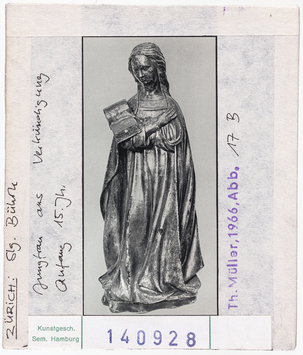 ZÜRICH: Slg. Bührle
Jungfrau aus Verkündigung
Anfang 15. Jh.
Th. Müller, 1966, Abb. 17 B
Kunstgesch.
Sem. Hamburg
140928